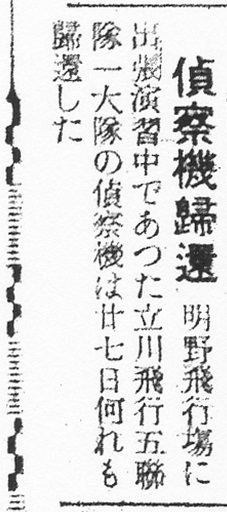 偵察機歸還 明野飛行場に
出張演習中であつた立川飛行五聯
隊一大隊の偵察機は廿七日何れも
歸還した